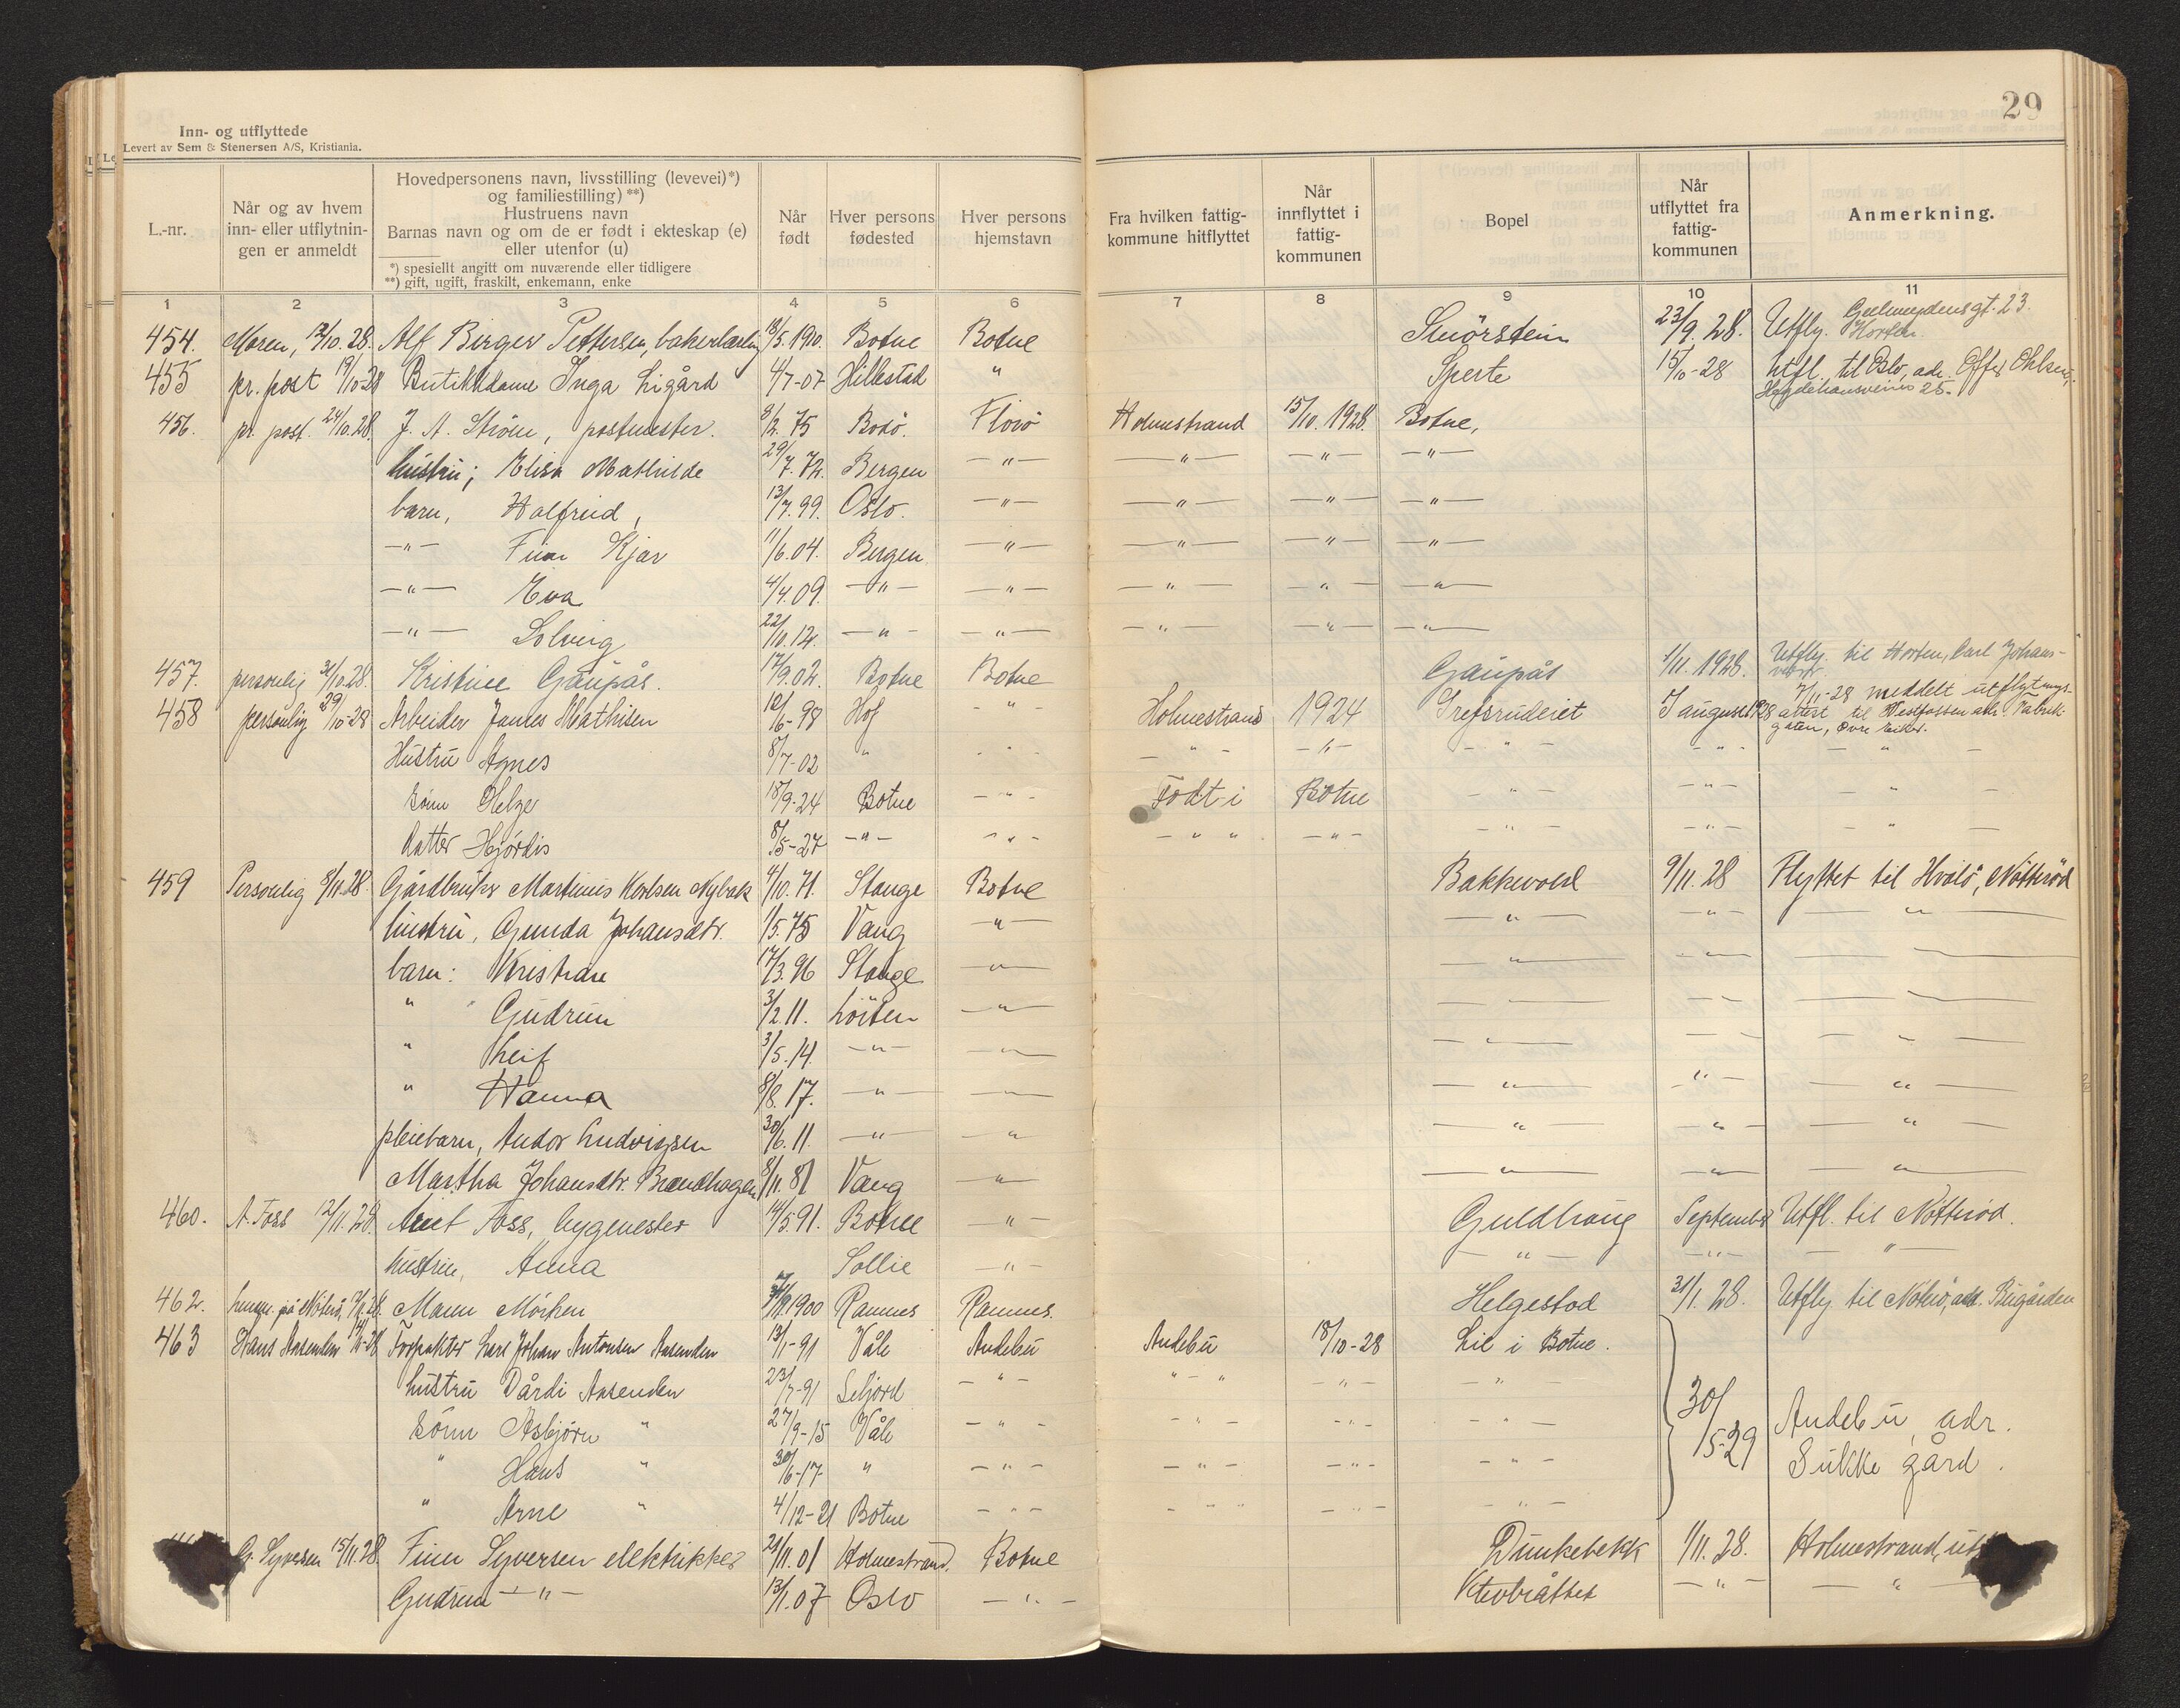 29
Inn- og utflyttede
Levert av Sem & Stenersen A/S, Kristiania.
L.-nr.
Når og av hvem inn- eller utflytnin-gen er anmeldt
Hovedpersonens navn, livsstilling (levevei)*)
og familiestilling)**)
Hustruens navn
Barnas navn og om de er født i ekteskap (e)
eller utenfor (u)
*) spesiellt angitt om nuværende eller tidligere
**) gift, ugift, fraskilt, enkemann, enke
Når født
Hver persons fødested
Hver persons hjemstavn
Fra hvilken fattig-kommune hitflyttet
Når innflyttet i fattig-kommunen
Bopel
Når utflyttet fra fattig-kommunen
Anmerkning.
1 2 3 4 5 6 7 8 9 10 11
454. Moren, /10.28. Alf Birger Pettersen, bakerlærling 18/5.1910. Botne Botne Smörstein 23/9.28. Utfly. 23. Horten.
455 pr. post 19/10-28 Butikkdame Inga Ligård 4/7-07 Hillestad " Sperte 15/10-28 Utfl. til Oslo, adr. Ohlsen, 25.
456. pr. post. 24/10.28. J. A. Ström, postmester. 9/2.75 Bodö. Florö Holmestrand 15/10.1928. Botne,
hustru; Elisa Mathilde 29/7.72. Bergen —"— —"— —"— —"—
barn, Halfrid, 13/7.99. Oslo. —"— —"— —"— —"—
—"— Finn Kjar 11/6.04. Bergen —"— —"— —"— —"—
—"— Eva 4/4.09. —"— —"— —"— —"— —"—
—"— Solveig 22/10.12. —"— —"— —"— —"— —"—
457. personlig 31/10.28. Kristine Gaupås. 17/9.02. Botne Botne Gaupås 1/11.1928. Utfly. til Horten, Carl Johans-
458 personlig 29/10-28 Arbeider James Mathisen 12/6-98 Hof - " - Holmestrand 1924 Grefsrudeiet I august 1928 7/11-28 meddelt utflytnings-
attest til Vestfossen adr. Fabrik-
gaten, Övre Eiker.
Hustru Agnes 8/7-02 " - " - — " - - " - - " - - " - — " —
Sönn Helge 18/9-24 Botne - " - Födt i Botne - " - - " - - " -
Datter Hjördis 8/5-27 —"— - " - — " " —"— - " - - " - - " —
459 Personlig 8/11.28. Gårdbruker Martinus Karlsen Nybak 4/10.71. Stange Botne Bakkevold 9/11.28 Flyttet til Hvalö, Nötteröd
hustru, Gunda Johansdtr. 1/5.75 Vang —"— —"— —"— —"—
barn: Kristian 17/3.96 Stange —"— —"— —"— ——
" Gudrun 3/2.11. Löiten —"— —— —"— ——
" Leif 3/5.14. —"— —"— —"— —"— —"—
" Hanna 8/8.17. —"— —"— —"— —"— —"—
pleiebarn, Andor Ludvigsen 30/6.11. —"— —"— —"— —"— —"—
Martha Johansdtr. Brændhagen 8/11.81 Vang —"— —"— —"— —"—
460. A. Foss 12/11.28. Foss, bygmester 14/5.91. Botne —"— Guldhaug September Utfl. til Nötteröd.
hustru, Anna Sollie —"— — " — —"— — " —
462. Maren Mörken 1900 Ramnes Ramnes. Helgestad 31/1.28. Utfly til Nöterö, adr. Bugården
463 Hans Aasenden 14/11-28 Forpakter Karl Johan Antonsen Aasenden 13/1-91 Våle Andebu Andebu 18/10-28 Lie i Botne.
hustru Dårdi Aasenden 23/7-91 Seljord — " — " - " - " - - " -
Sönn Asbjörn " 27/9-15 Våle - " - - " - - " - - " —
" Hans " 30/6-17- " - " - — " - - " - - " - 30/5-29 Andebu, adr. Sukke gård.
" Arne " 4/12-21 Botne - " - - " " - " - - " -
G. Syversen 15/11.28. Finn Syversen elektriker 21/11.01 Holmestrand. Botne Dunkebekk 1/11.28. Holmestrand,
Gudrun —"— 13/1.07 Oslo — " - —"— — " —